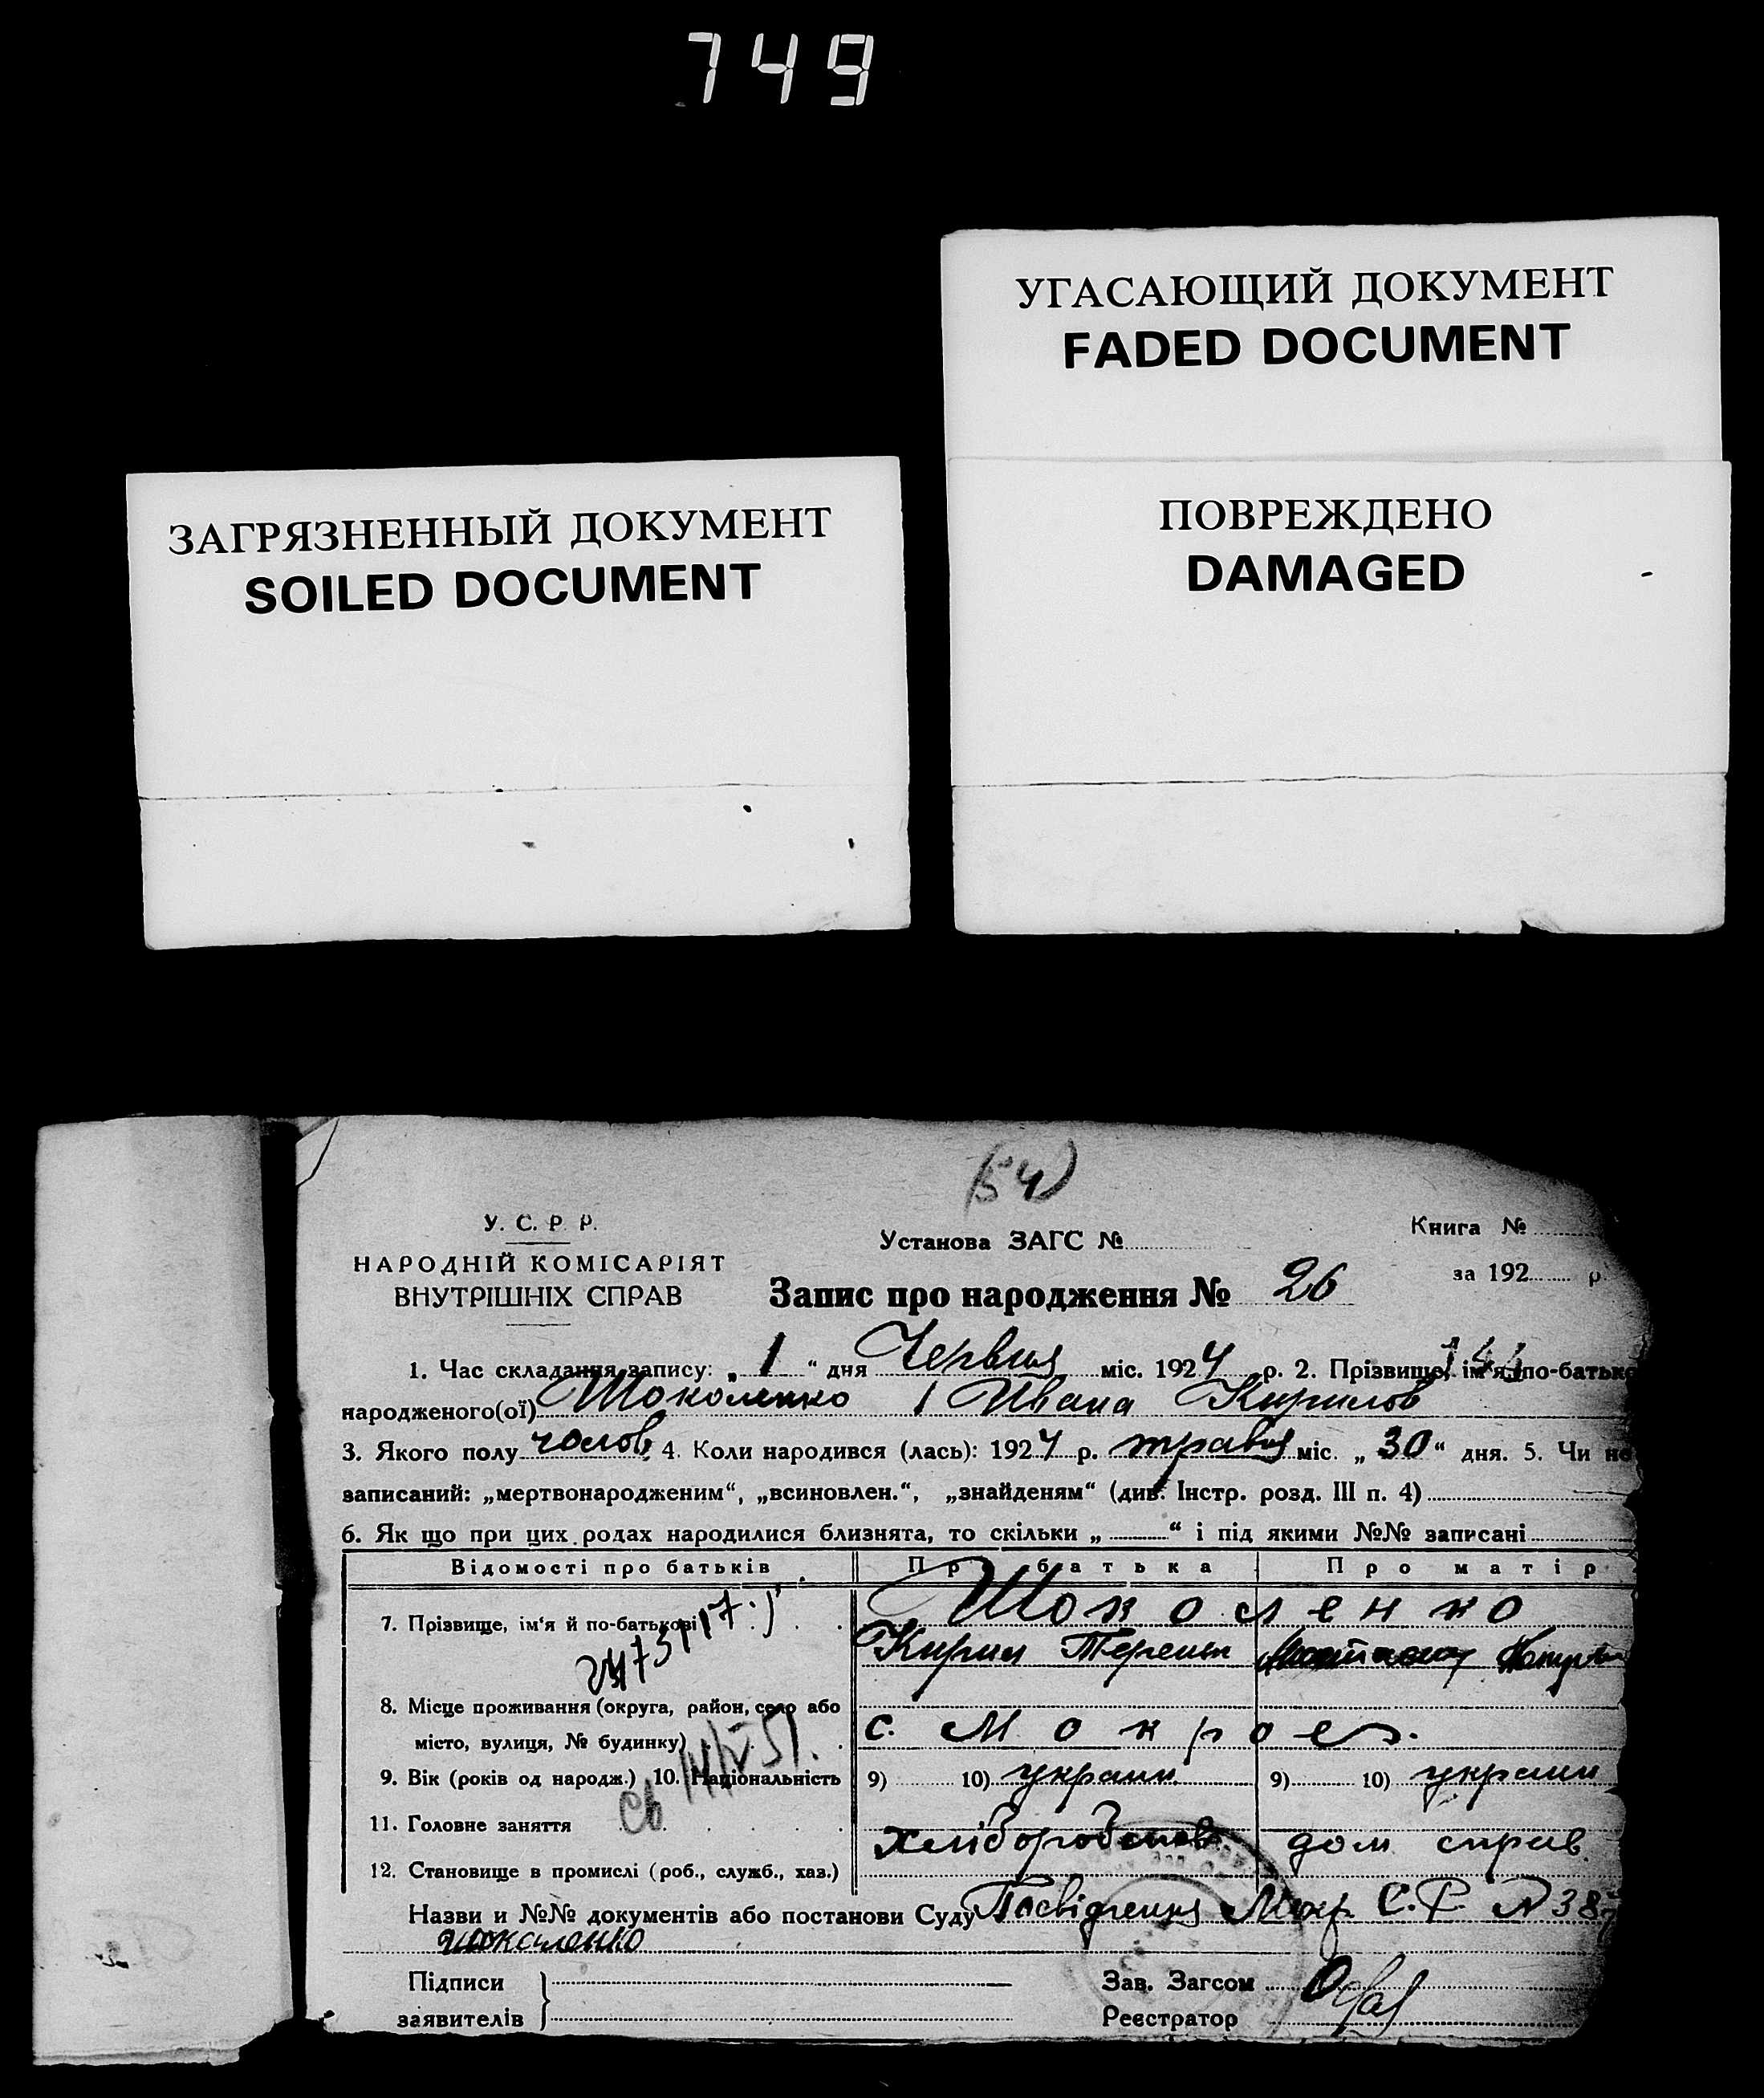 749
УГАСАЮЩИЙ ДОКУМЕНТ
FADED DOCUMENT
ЗАГРЯЗНЕННЫЙ ДОКУМЕНТ
SOILED DOCUMENT
ПОВРЕЖДЕНО
DAMAGED
54
У. С. Р. Р.
НАРОДНІЙ КОМІСАРІЯТ
ВНУТРІШНІХ СПРАВ
Установа ЗАГС №
Книга №
за 192 р
Запис про народження № 26
1. Час складання запису: „ 1 “ дня Червня міс. 1924 р. 2. Прізвище, ім'я, по-батьк
народженого(ої) Шоколенко Ивана Кирилов
3. Якого полу чолов. 4. Коли народився (лась): 1924 р. травня міс. „ 30 “ дня. 5. Чи не
записаний: „мертвонародженим“, „всиновлен.“, „знайденям“ (див. Інстр. розд. III п. 4)
6. Як що при цих родах народилися близнята, то скільки „ “ і під якими №№ записані
Відомості про батьків
Про батька
Про матір
7. Прізвище, ім'я й по-батькові
Шоколенко
Кирил Терент
8. Місце проживання (округа, район, село або
місто, вулиця, № будинку)
с. Мокрое.
9. Вік (років од народж.) 10. Національність
9) 10) украин
9) 10) украин
11. Головне заняття
Хлібороб
дом справ.
12. Становище в промислі (роб., служб., хаз.)
Назви и №№ документів або постанови Суду Посвідчення Мокр. С.Р. № 38
Шокаленко
Підписи
заявителів
Зав. Загсом
Реєстратор